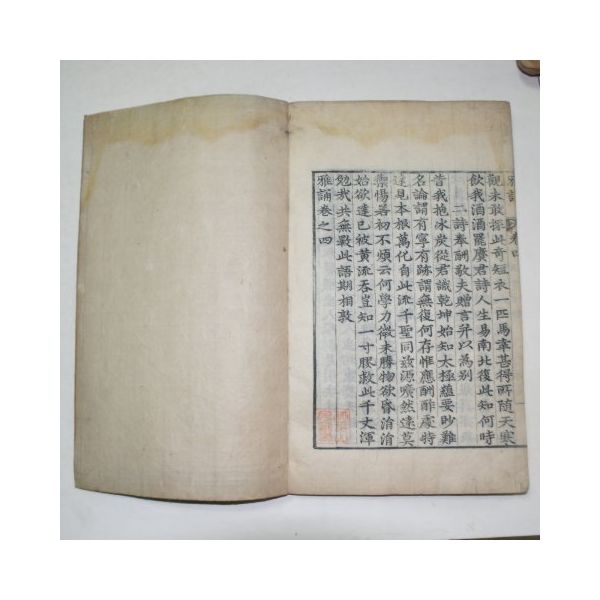 觀未敢探此奇短衣一匹馬幸甚得所隨天寒
飲我酒酒罷賡君詩人生易南北復此知何時
二詩奉酬敬夫贈言幷以爲別
昔我抱冰炭從君識乾坤始知太極蘊要眇難
名論謂有寧有跡謂無復何存惟應酬酢處特
達見本根萬化自此流千聖同玆源曠然遠莫
禦惕若初不煩云何學力微未勝物欲昏涓涓
始欲達已被黃流呑豈知一寸膠救此千丈渾
勉哉共無斁此語期相敦
雅誦卷之四